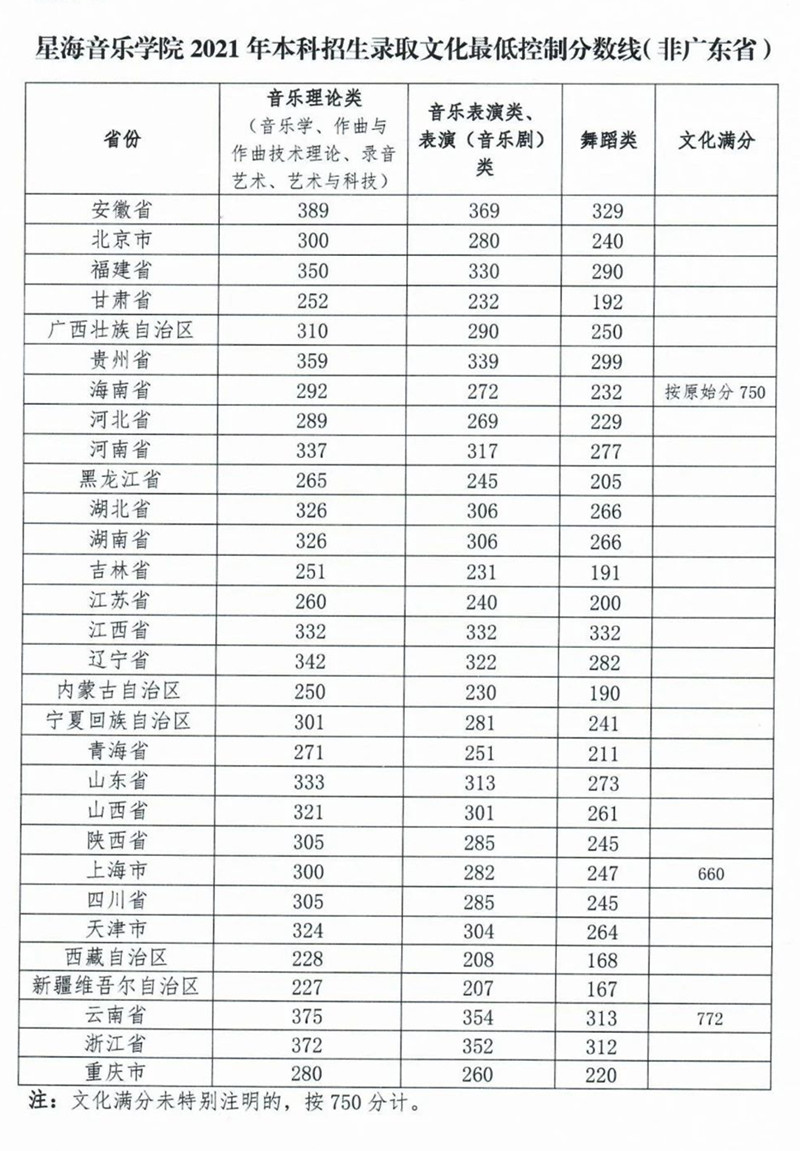 星海音乐学院 2021 年本科招生录取文化最低控制分数线(非广东省)
省份 音乐理论类 (音乐学、作曲与 作曲技术理论、录音 艺术、艺术与科技) 音乐表演类、 表演（音乐剧） 类 舞蹈类 文化满分
安徽省 389 369 329
北京市 300 280 240
福建省 350 330 290
甘肃省 252 232 192
广西壮族自治区 310 290 250
贵州省 359 339 299
海南省 292 272 232 按原始分 750
河北省 289 269 229
河南省 337 317 277
黑龙江省 265 245 205
湖北省 326 306 266
湖南省 326 306 266
吉林省 251 231 191
江苏省 260 240 200
江西省 332 332 332
辽宁省 342 322 282
内蒙古自治区 250 230 190
宁夏回族自治区 301 281 241
青海省 271 251 211
山东省 333 313 273
山西省 321 301 261
陕西省 305 285 245
上海市 300 282 247 660
四川省 305 285 245
天津市 324 304 264
西藏自治区 228 208 168
新疆维吾尔自治区 227 207 167
云南省 375 354 313 772
浙江省 372 352 312
重庆市 280 260 220
注：文化满分未特别注明的，按 750 分计。